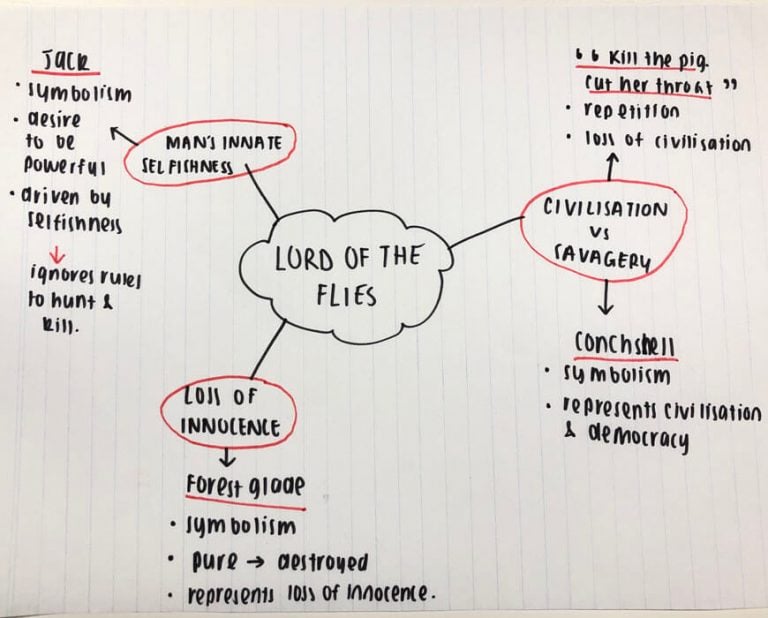 LORD OF THE
FLIES
MAN'S INNATE
SELFISHNESS
Jack
• symbolism
• desire
to be
powerful
• driven by
selfishness
ignores rules
to hunt &
kill.
CIVILISATION
VS
SAVAGERY
“Kill the pig.
Cut her throat”
• repetition
• loss of civilisation
Conchshell
• symbolism
• represents civilisation
& democracy
LOSS OF
INNOCENCE
Forest glade
• symbolism
• pure → destroyed
• represents loss of innocence.